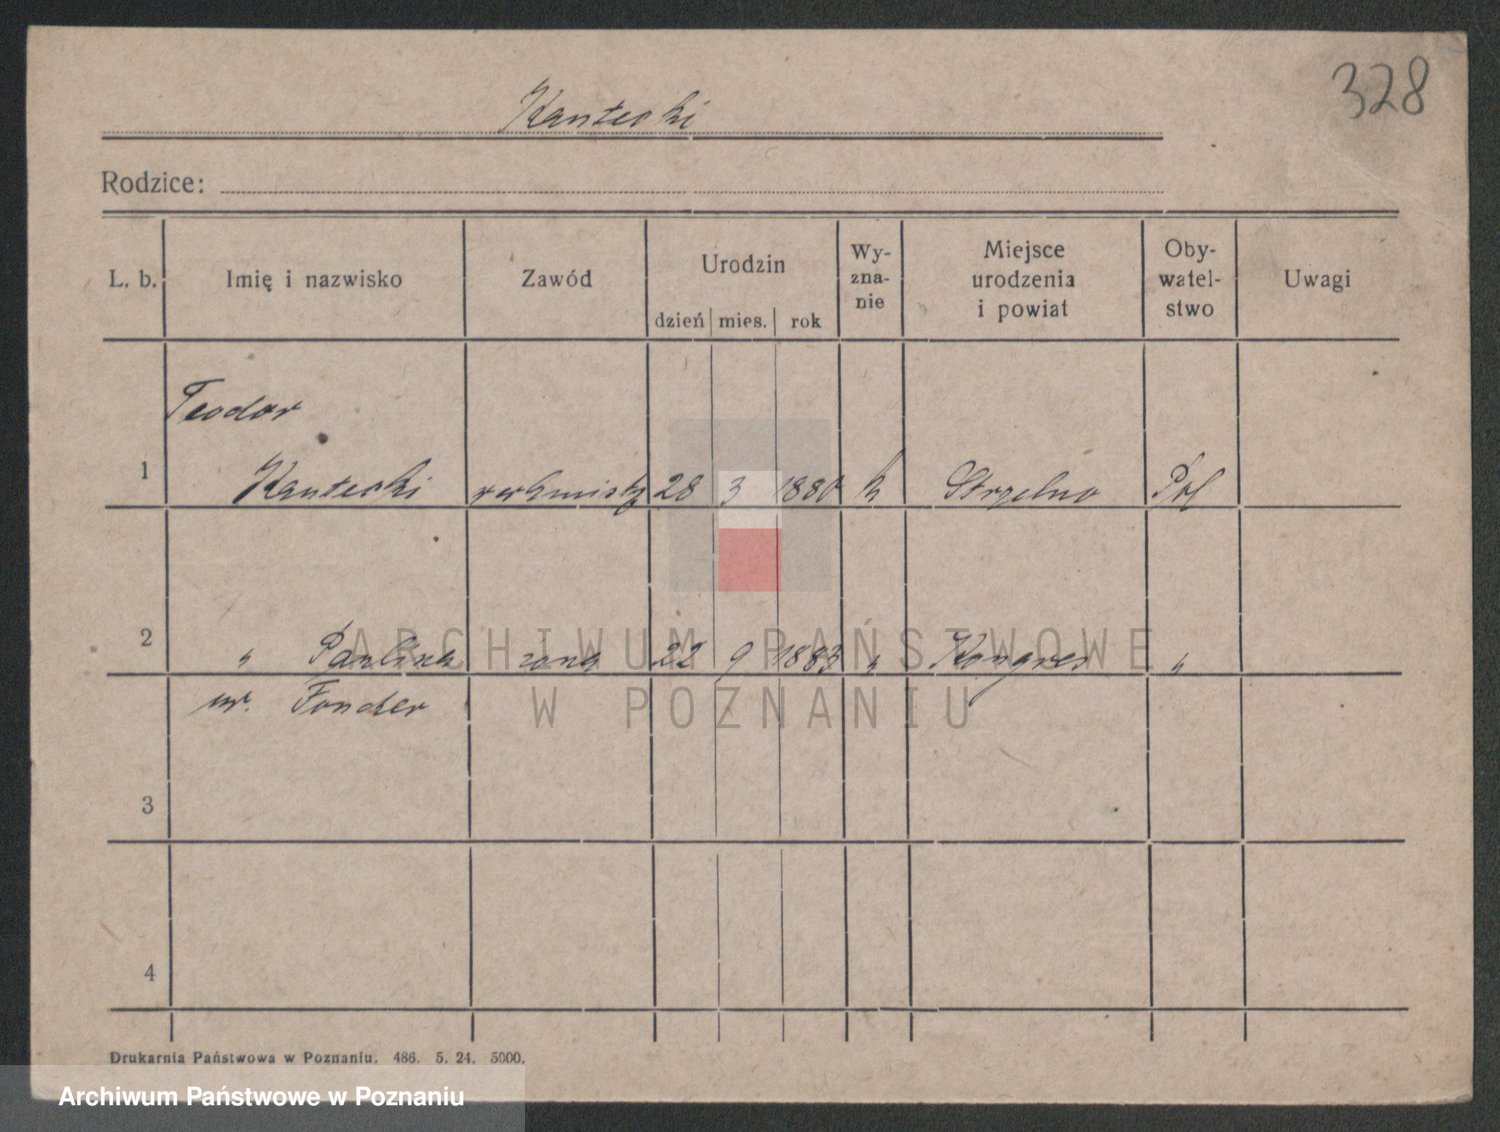 328
Kantecki
Rodzice:
L. b. Imię i nazwisko Zawód Urodzin dzień mies. rok Wy-zna-nie Miejsce urodzenia i powiat Oby-watel-stwo Uwagi
Teodor
1 Kantecki werkmistrz 28 3 1880 k Strzelno Pol
2 " Paulina żona 22 9 1883 " Kongres "
ur. Fonder
3
4
ARCHIWUM PAŃSTWOWE
W POZNANIU
Drukarnia Państwowa w Poznaniu. 486. 5. 24. 5000.
Archiwum Państwowe w Poznaniu